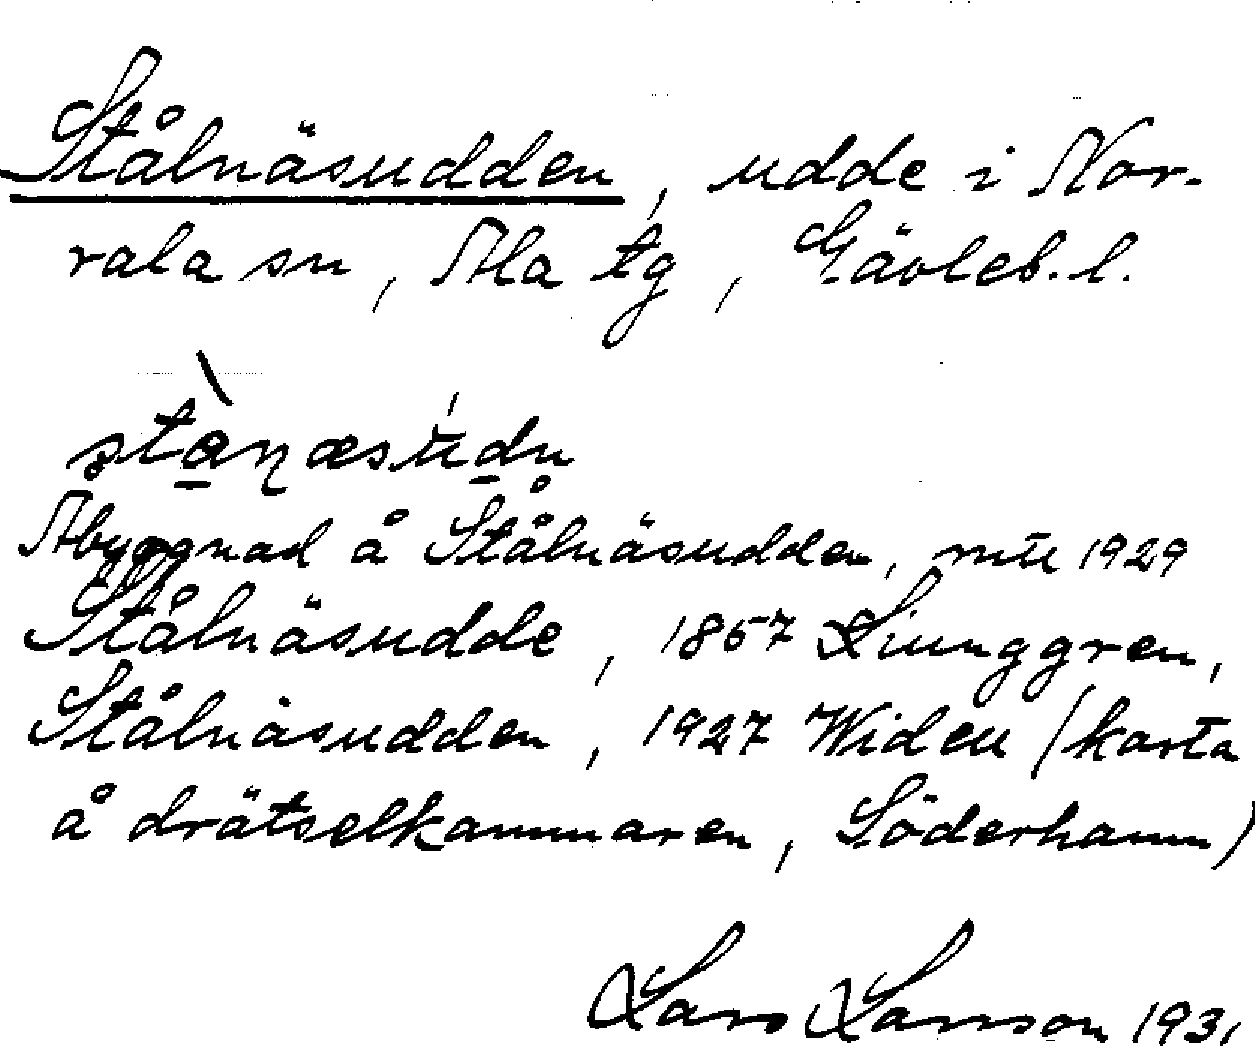 Stålnäsudden, udde i Nor-
rala sn, Ala tg, Gävleb. l.
Obyggnad å Stålnäsudden, mtl 1929
Stålnäsudde, 1857 Liunggren,
Stålnäsudden, 1927 Widen (karta
å drätselkammaren, Söderhamn)
Lars Larsson 1931